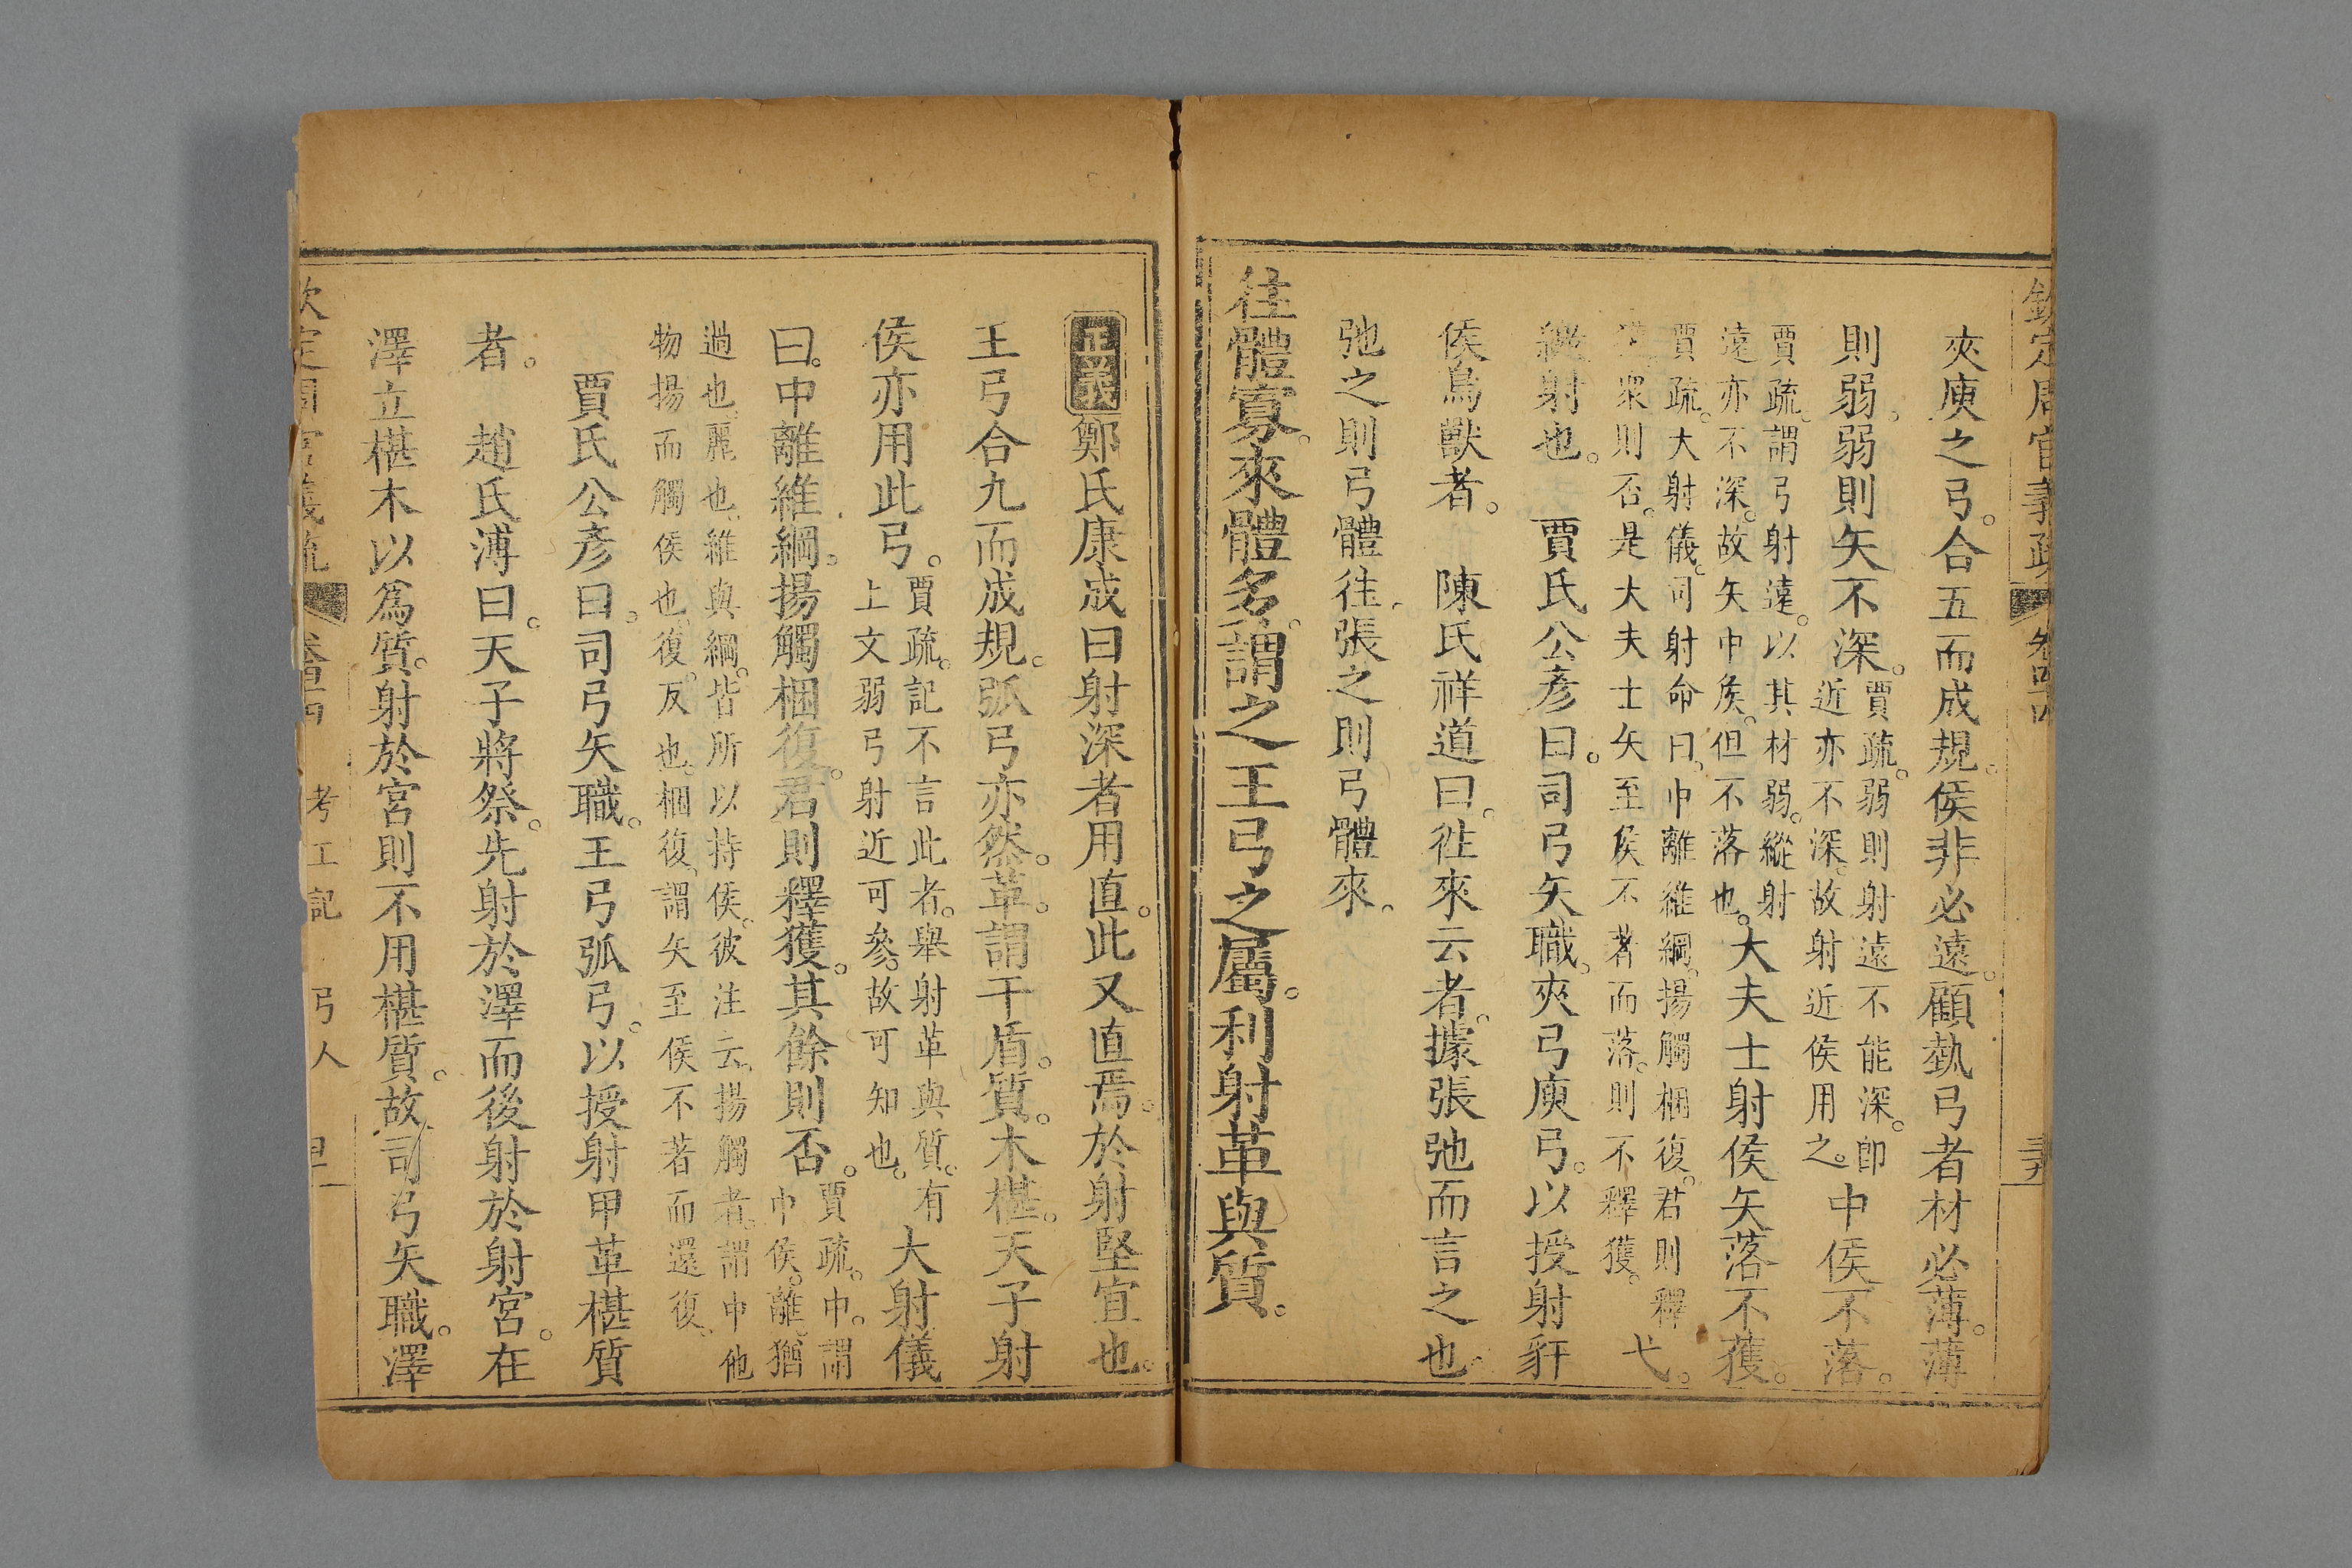 欽定周官義疏 卷四十四
夾庾之弓。合五而成規。侯非必遠。顧埶弓者材必薄。薄
則弱。弱則矢不深。賈疏。弱則射遠不能深。卽近亦不深。故射近侯用之。中侯不落。
賈疏。謂弓射遠。以其材弱。縱射遠亦不深。故矢中侯。但不落也。大夫士射侯。矢落不獲。
賈疏。大射儀。司射命曰。中離維綱。揚觸梱復。君則釋獲。衆則否。是大夫士矢至侯不著而落。則不釋獲。弋。
繳射也。 賈氏公彥曰。司弓矢職。夾弓庾弓。以授射豻
侯鳥獸者。 陳氏祥道曰。徃來云者。據張弛而言之也。
弛之則弓體往。張之則弓體來。
往體寡。來體多。謂之王弓之屬。利射革與質。
正義 鄭氏康成曰射深者用直。此又直焉。於射堅宜也。
王弓合九而成規。弧弓亦然。革。謂干盾。質。木椹。天子射
侯亦用此弓。賈疏。記不言此者。舉射革與質。有上文弱弓射近可參。故可知也。大射儀
曰。中離維綱。揚觸梱復。君則釋獲。其餘則否。賈疏。中。謂中侯。離。猶
過也。麗也。維與綱。皆所以持侯。彼注云。揚觸者。謂中他物揚而觸侯也。復。反也。梱復。謂矢至侯不著而還復。
賈氏公彥曰。司弓矢職。王弓弧弓。以授射甲革椹質
者。 趙氏溥曰。天子將祭。先射於澤而後射於射宮。在
澤立椹木以爲質。射於宮則不用椹質。故司弓矢職。澤
欽定周官義疏 卷四十四 考工記 弓人